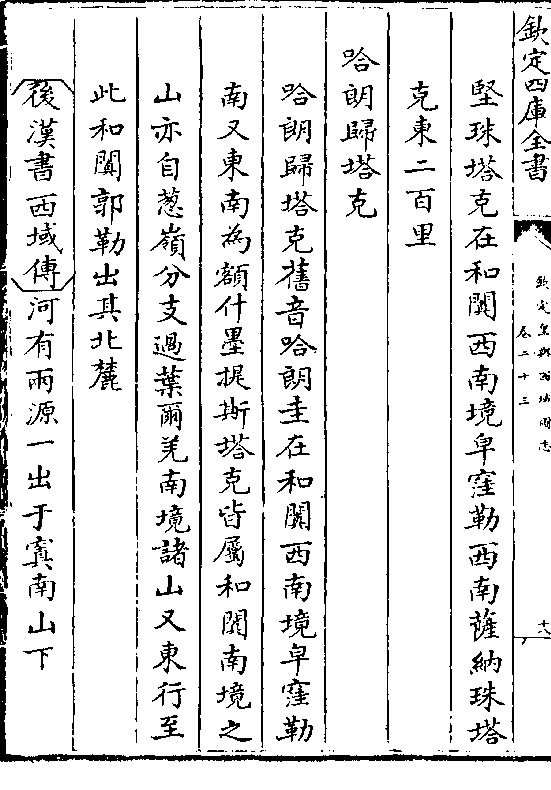 欽定四庫全書
欽定皇輿西域圖志
卷二十三
十八
堅珠塔克在和闐西南境皁窪勒西南薩納珠塔
克東二百里
哈朗歸塔克
哈朗歸塔克舊音哈朗圭在和闐西南境皁窪勒
南又東南為額什墨提斯塔克皆屬和闐南境之
山亦自葱嶺分支過葉爾羌南境諸山又東行至
此和闐郭勒出其北麓
後漢書西域傳河有兩源一出于窴南山下